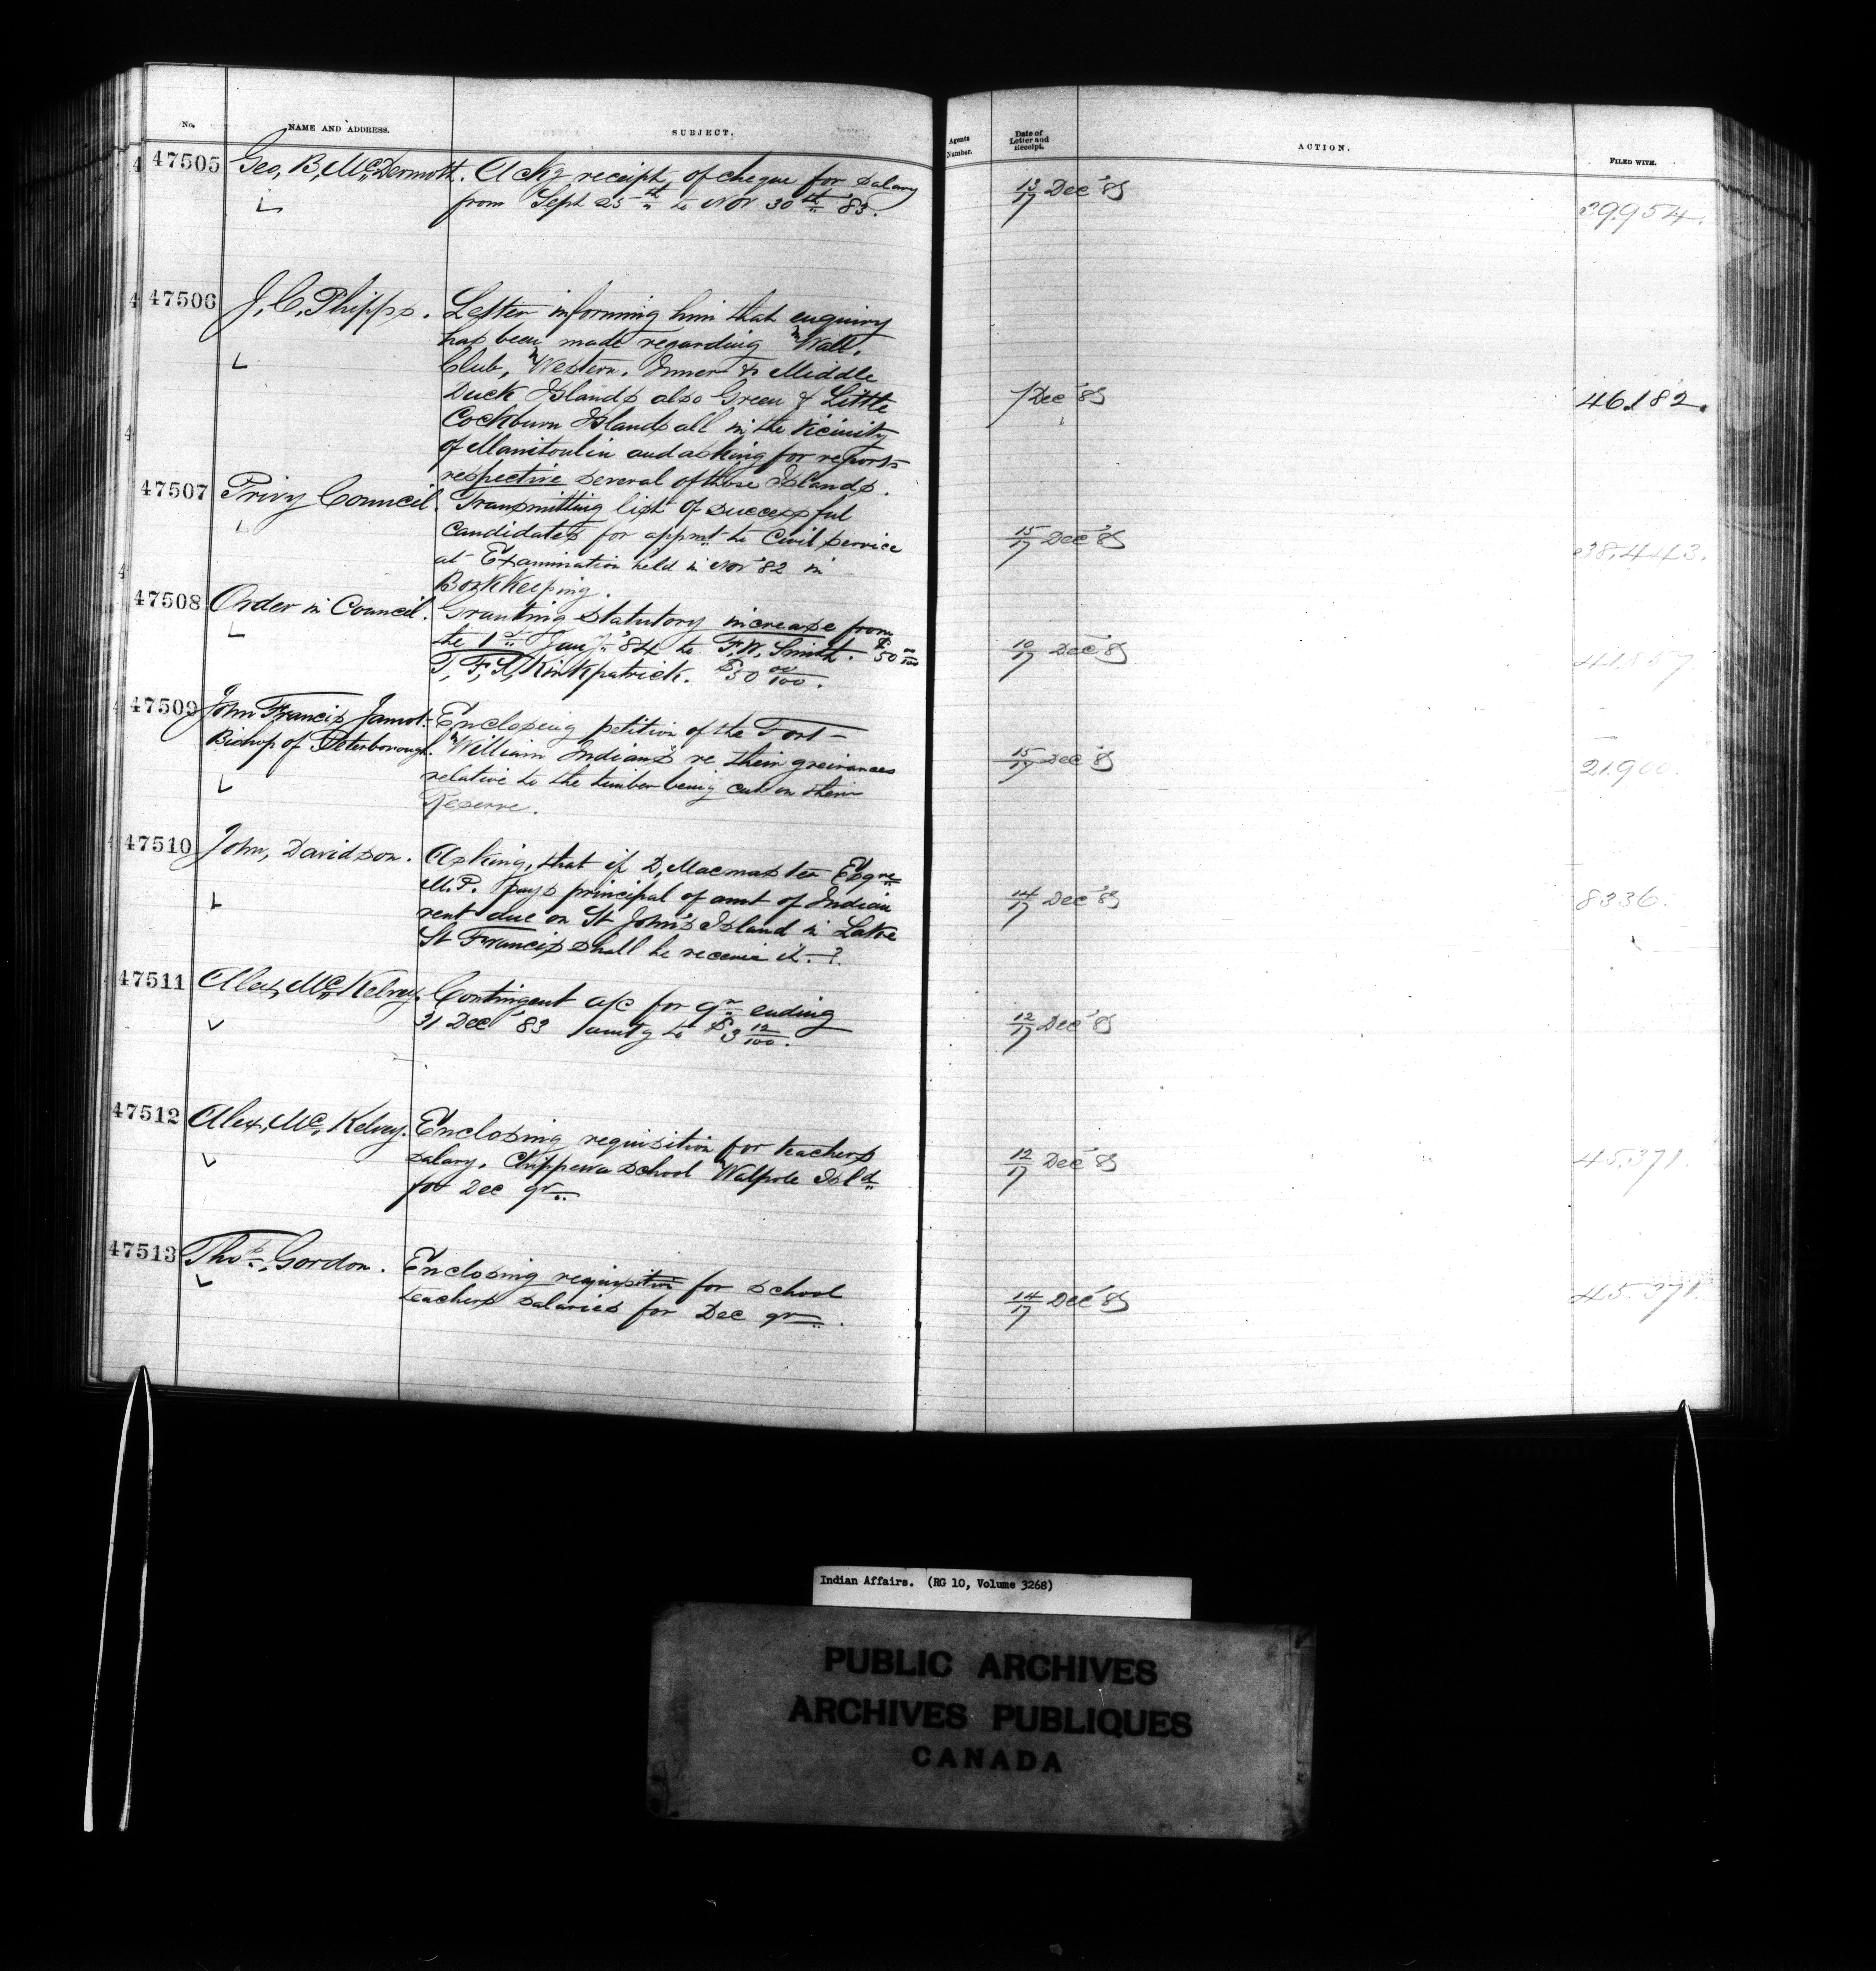 No. NAME AND ADDRESS. SUBJECT. Agents Number. Date of Letter and Receipt. ACTION. FILED WITH.
47505 Geo, B, McDermott. Ackg receipt of cheque for salary
from Sept 25th to Nov 30th 83. 13/17 Dec '83 39954.
47506 J, C, Phipps. Letter informing him that enquiry
has been made regarding Wall.
Club, Western. Inner & Middle
Duck Islands also Green & Little 7 Dec '83 46182.
Cockburn Islands all in the vicinity
of Manitoulin and asking for reports
respective several of those Islands.
47507 Privy Council. Transmitting list of successful
candidates for appmt to Civil Service 15/17 Dec '83 38,443.
at Examination held in Nov '82 in
Bookkeeping.
47508 Order in Council. Granting statutory increase from
the 1st Jany '84 to F. W. Smith. $50 00/100 10/17 Dec '83
T, F, S, Kirkpatrick. $50 00/100.
47509 John Francis Jamot. Enclosing petition of the Fort-
Bishop of Peterborough. William Indians re their greivances 15/17 Dec '83 21900.
relative to the timber being cut on their
Reserve.
47510 John, Davidson. Asking, that if D, Macmaster Esqre
M.P. pays principal of amt of Indian 14/17 Dec '83 8336.
rent due on St John's Island in Lake
St Francis shall he receive it.-?
47511 Alex, McKelvey. Contingent a/c for qr ending
31 Dec '83 amtg to $3 12/100. 12/17 Dec '83
47512 Alex, Mc, Kelvey. Enclosing requisition for teachers
salary. Chippewa school Walpole Isld 12/17 Dec '83 45,371.
for Dec qr
47513 Thos, Gordon. Enclosing requisition for school
teachers salaries for Dec qr. 14/17 Dec '83 45.371.
Indian Affairs. (RG 10, Volume 3268)
PUBLIC ARCHIVES
ARCHIVES PUBLIQUES
CANADA